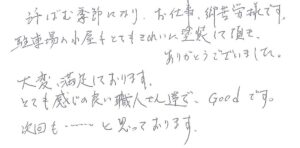 汗ばむ季節になり、お仕事、御苦労様です。
駐車場の小屋もとてもきれいに塗装して頂き、
ありがとうございました。
大変、満足しております。
とても感じの良い職人さん達で、Goodです。
次回も……と思っております。